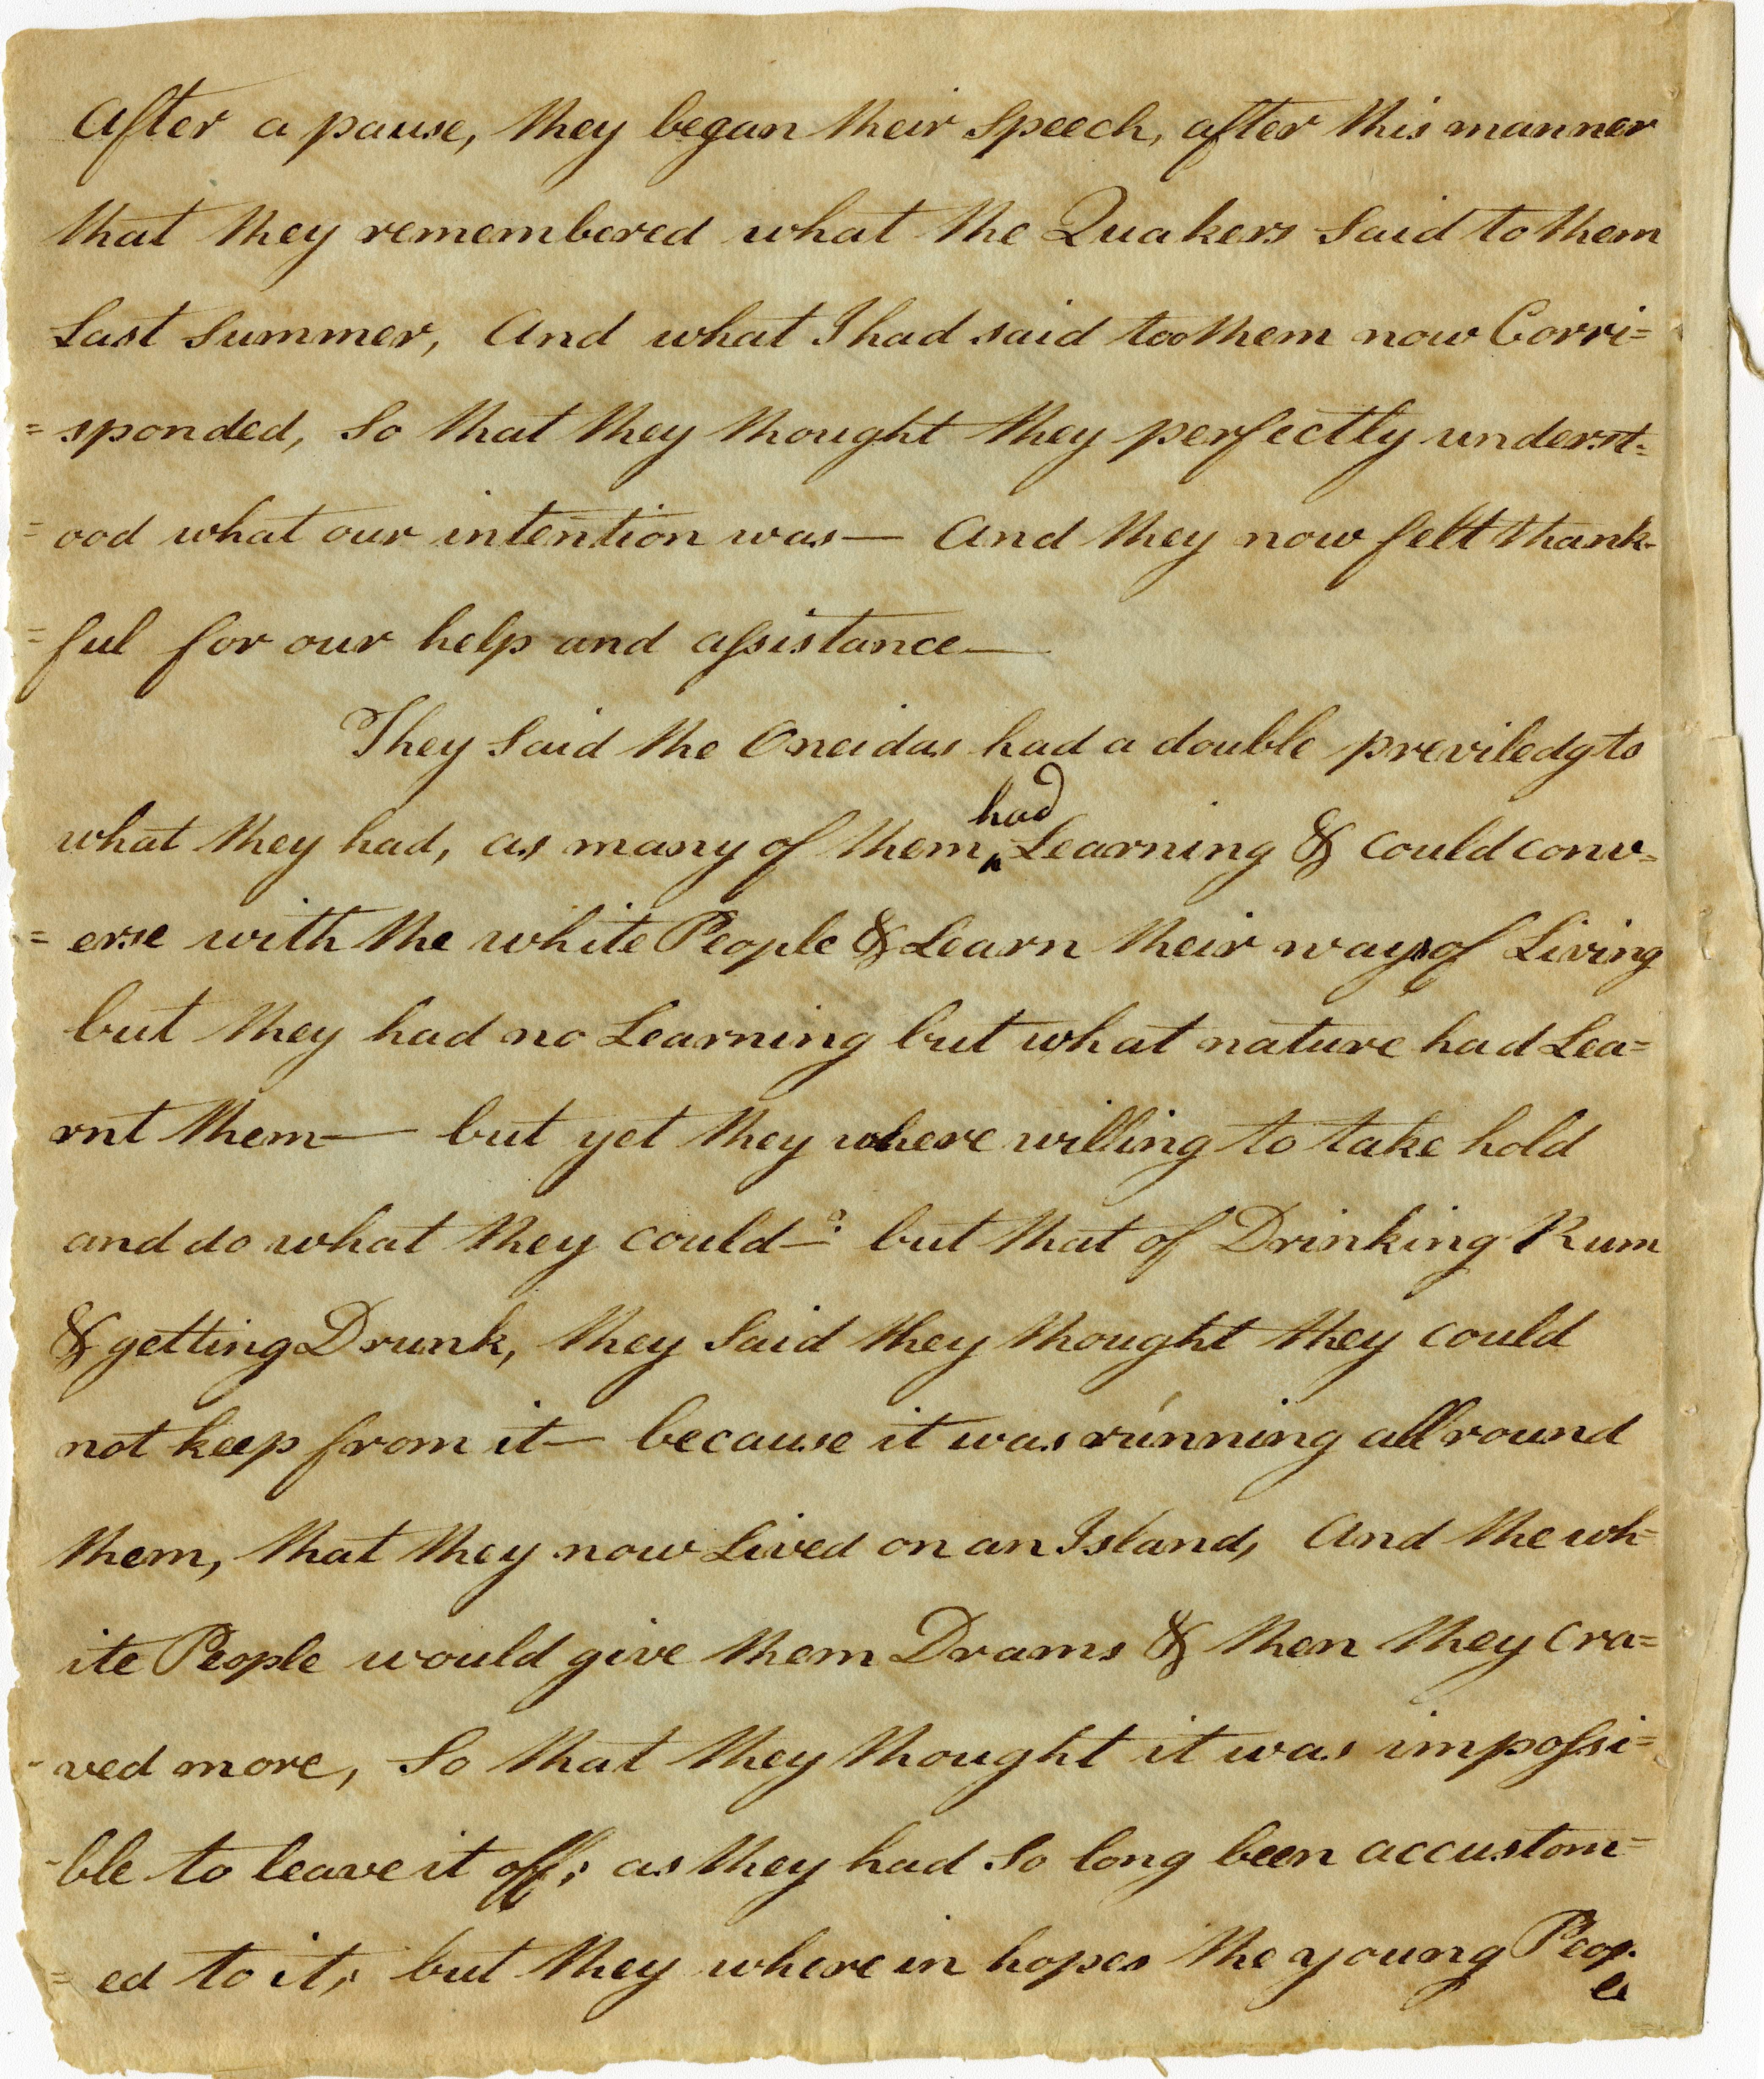 After a pause, they began their Speech, after this manner
that they remembered what the Quakers Said to them
Last Summer, And what I had said too them now Corri=
= sponded, So that they thought they perfectly underst=
= ood what our intention was — And they now felt thank-
= ful for our help and assistance —
They Said the Oneidas had a double previledg to
had
what they had, as many of them ‸ Learning & Could conv=
= erse with the white People & Learn their ways of Living
but they had no Learning but what nature had Lea=
rnt them — but yet they where willing to take hold
and do what they could — but that of Drinking Rum
& getting Drunk, they Said they thought they could
not keep from it — because it was running all round
them, that they now Lived on an Island, And the wh=
ite People would give them Drams & then they Cra=
- ved more, So that they thought it was impossi=
- ble to leave it off; as they had So long been accustom=
= ed to it; but they where in hopes the young Peop
le